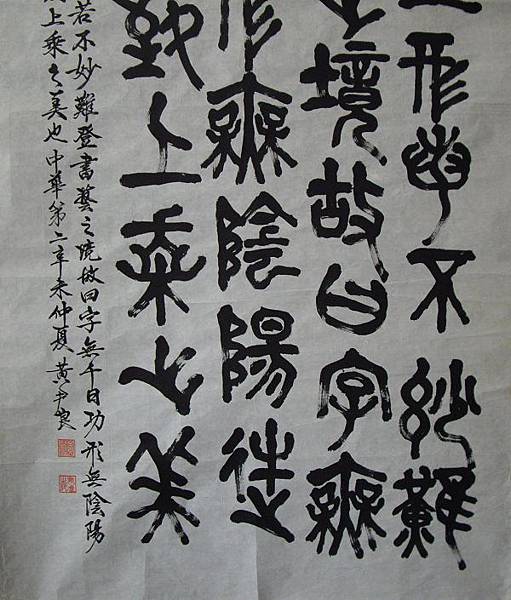 形若不妙難
境故曰字無
形無陰陽
致上乘之美
若不妙難登書藝之境故曰字無千日功形無陰陽
上乘之美也中華第二辛未仲夏黃尹良